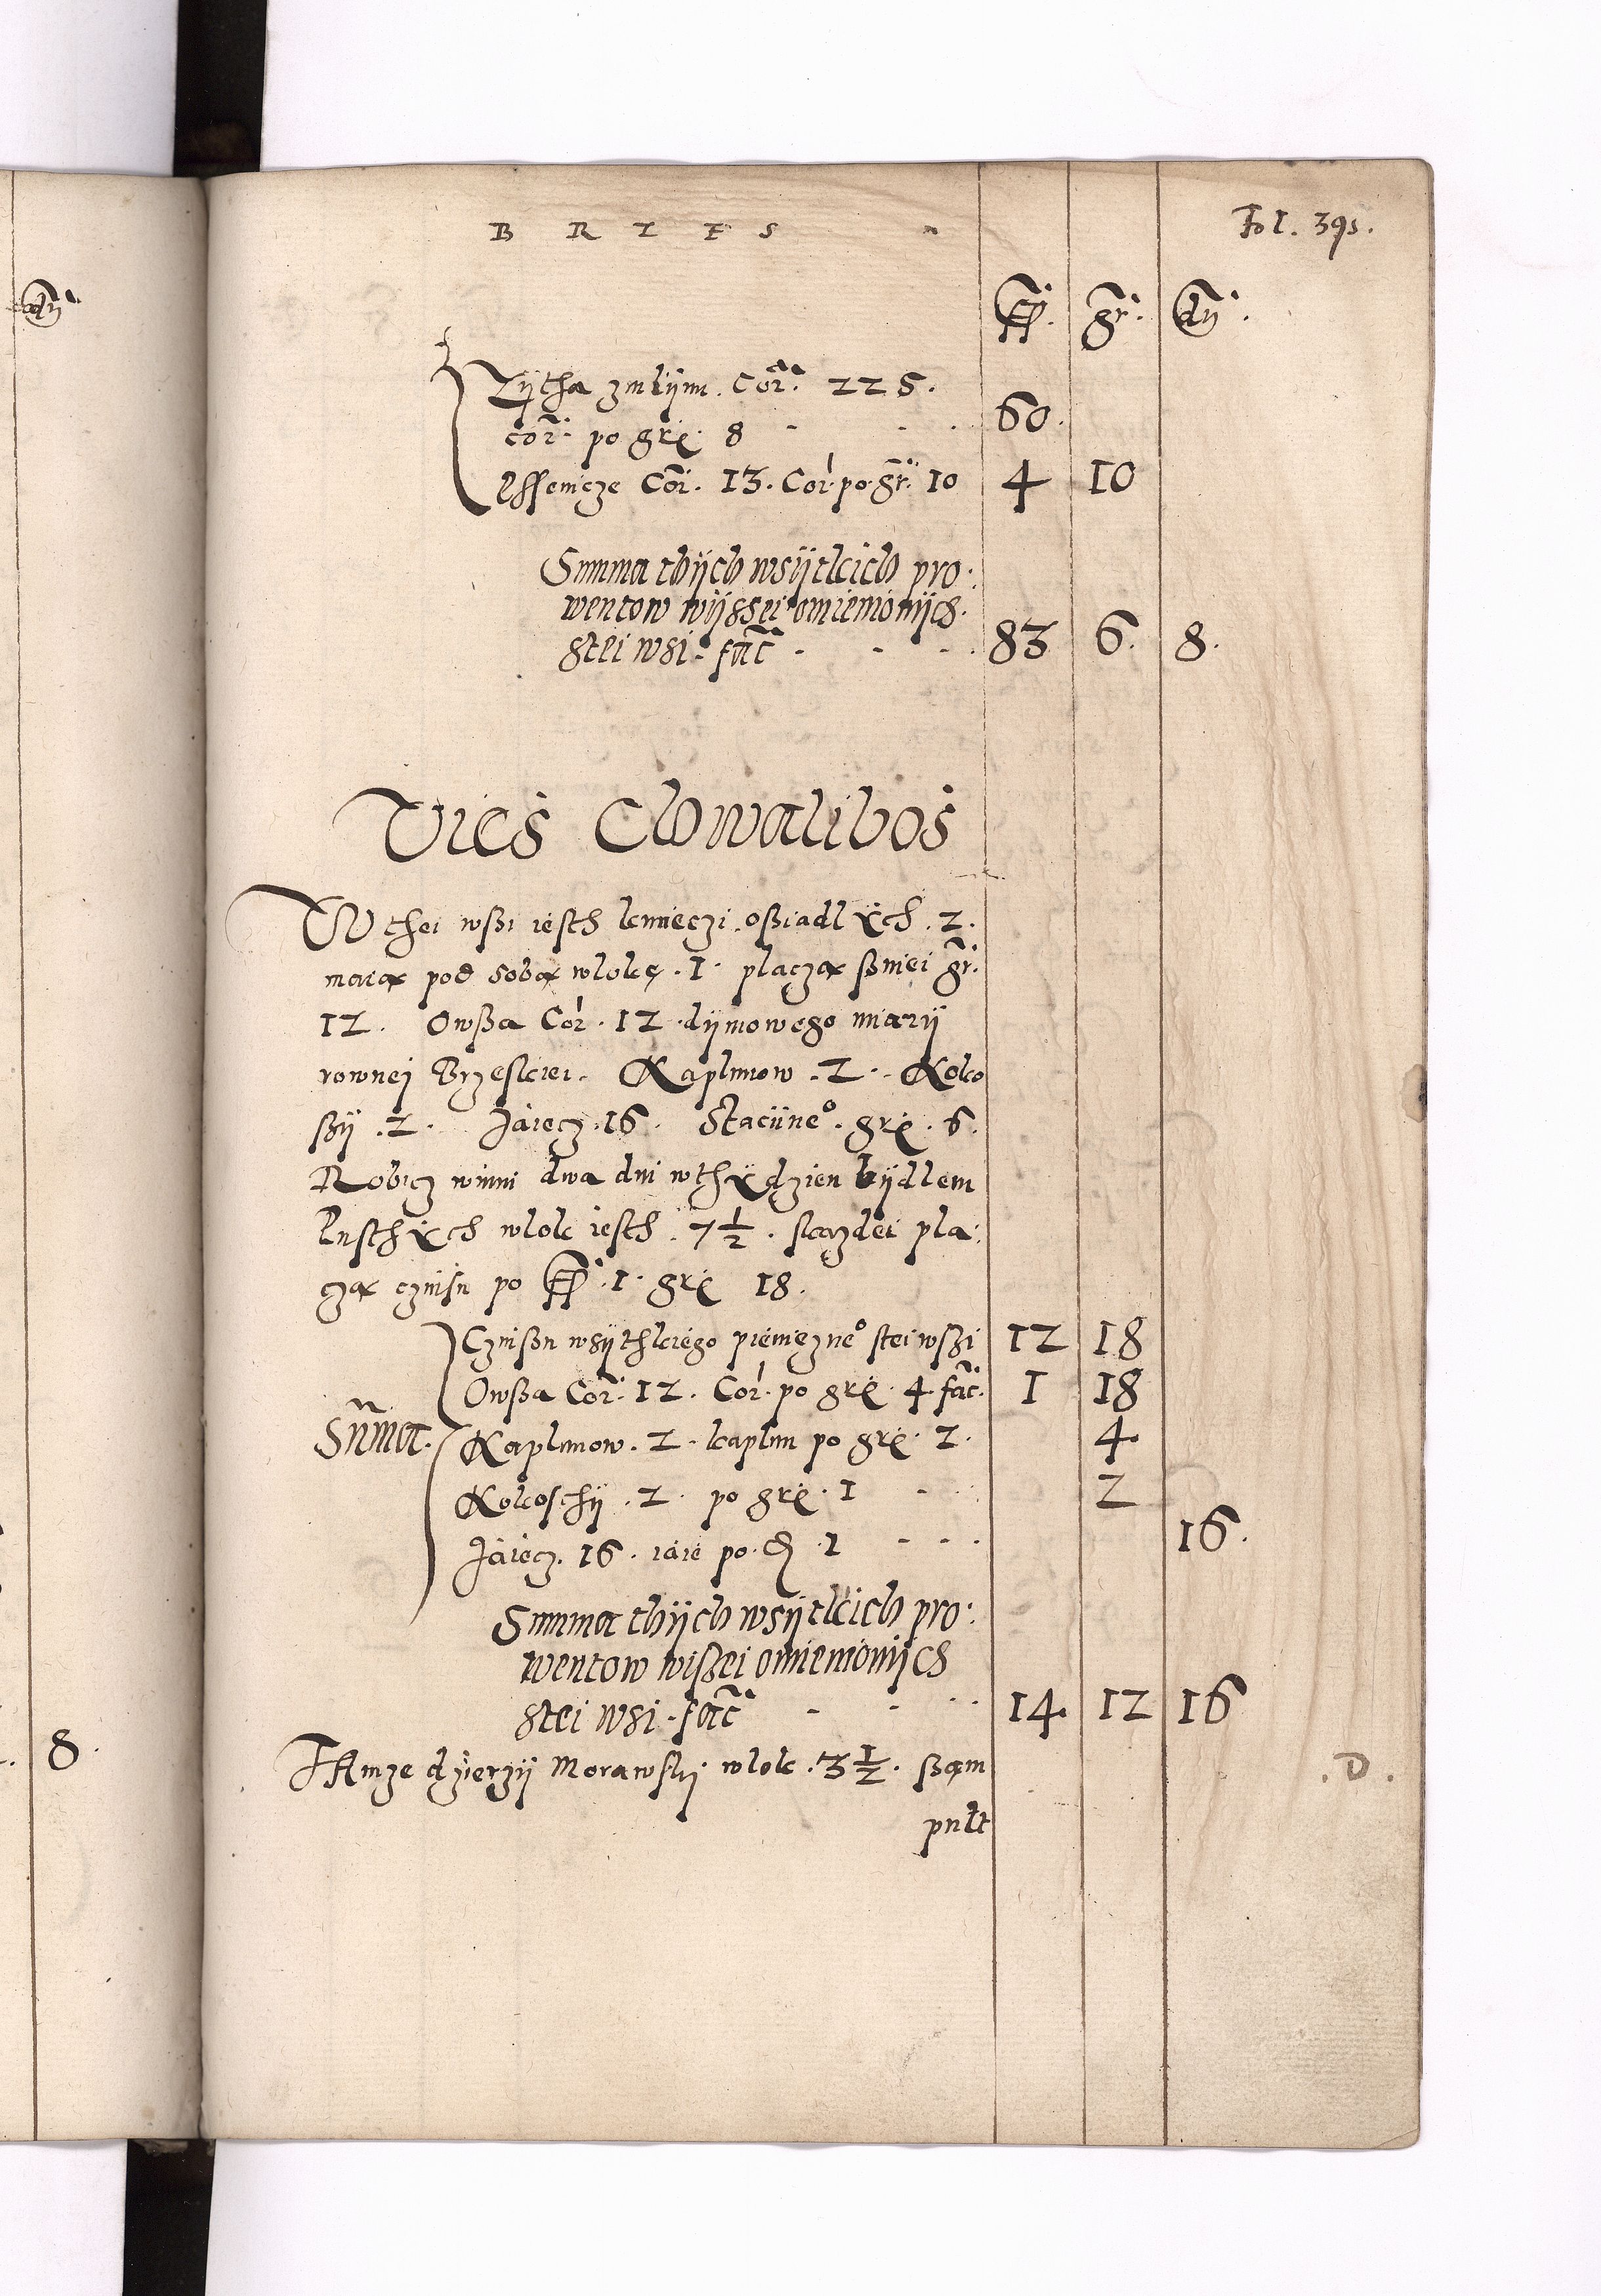 B R I E S
Fol. 395.
gr. d
Zÿtha zmlÿnn. Cor. 225.
cor. po grͦ. 8 60.
Pssenicze Cor. 13. Cor. po. gr. 10 4 10
Summa thÿch wsÿtkich pro:
wentow wÿssei omienionÿch
stei wsi. fac̃ 83 6. 8.
Vies Chwalibos
W thei wßi iesth kmieczi oßiadlÿch. 2.
maia̧ pod soba̧ wlokę. 1. placza̧ ßniei gr.
12. Owßa Cor. 12. dÿmowego miarÿ
rownej Brzeskiei. Kaplunow. 2. Koko
ßÿ. 2. Jaiecz. 16. Staciineº. grͦ. 6.
Robicz winni dwa dni wthÿdzien bÿdlem
Pusthÿch wlok iesth. 7 1/2. skazdei pla:
cza̧ czinsu po 1. grͦ 18.
Czinßu wsÿthkiego pieniezneº stei wßi 12 18
Owßa Cor. 12. Cor. po grͦ. 4. fac̃. 1 18
Sum̃a.
Kaplunow. 2. kaplun po grͦ. 2. 4
Kokoschÿ. 2. po grͦ. 1 2
Jaiecz. 16. iaie po. d. 1 16.
Summa thÿch wsÿtkich pro:
wentow wißei omienionÿch
stei wsi. fac̃ 14. 12 16
THmze dzierzÿ Morawsky. wlok. 3 1/2. ßa̧m
pult
.D.
8.